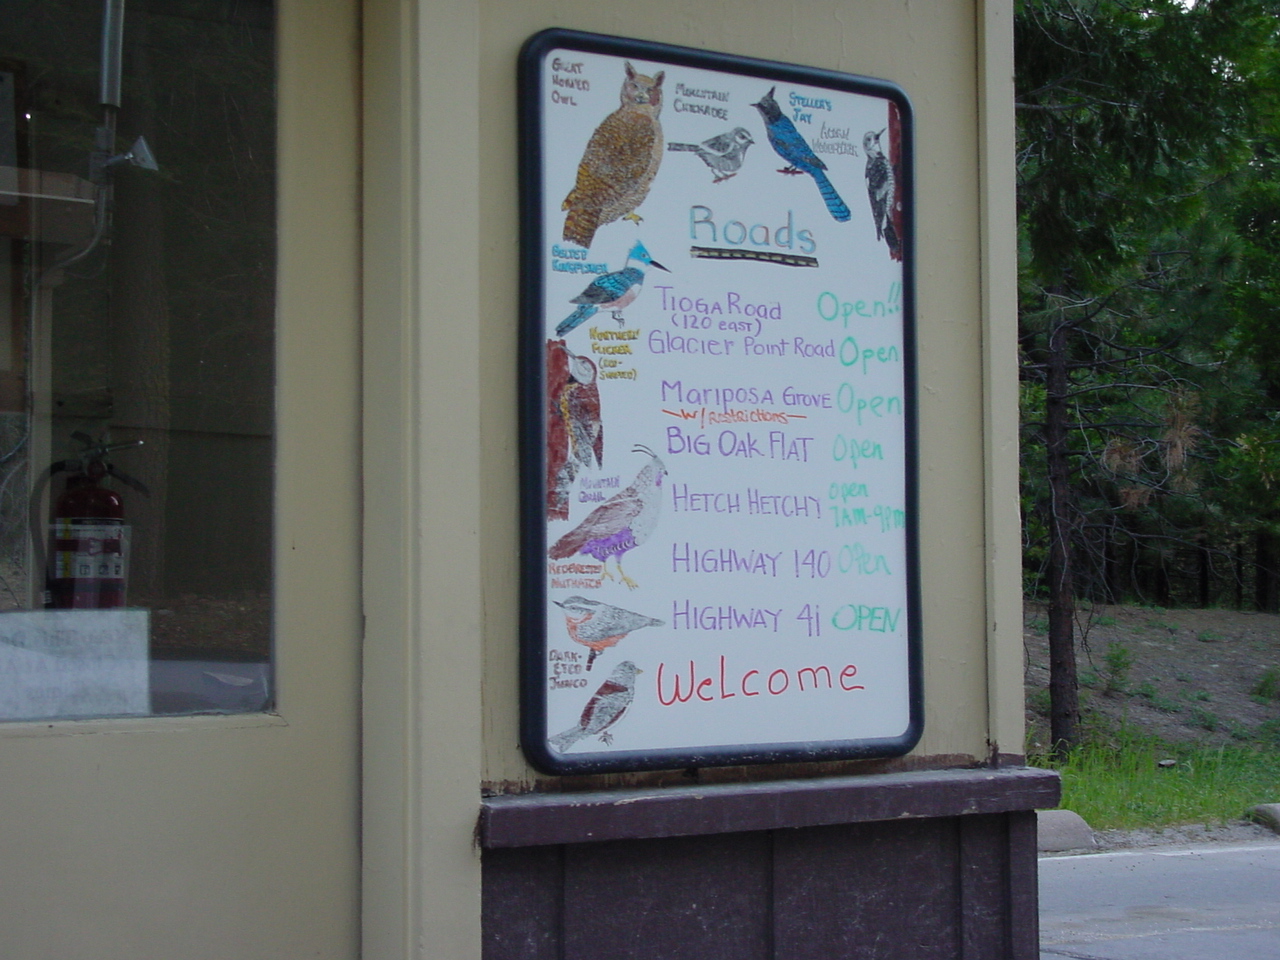 GREAT
HORNED
OWL
MOUNTAIN
CHICKADEE
STELLER'S
JAY
ACORN
WOODPECKER
Roads
BELTED
KINGFISHER
TIOGA ROAD Open!!
(120 east)
NORTHERN
FLICKER
(RED-
SHAFTED)
Glacier Point Road Open
MARIPOSA GROVE Open
W/ Restrictions
BIG OAK FLAT Open
MOUNTAIN
QUAIL
HETCH HETCHY open
7AM-9PM
HIGHWAY 140 Open
NUTHATCH
HIGHWAY 41 OPEN
DARK-
EYED
JUNCO
WeLcome